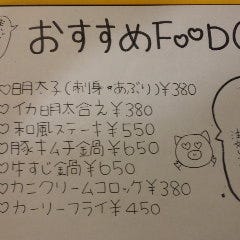 おすすめFOOD
♡明太子(刺身・あぶり)¥380
♡イカ明太合え¥380
♡和風ステーキ¥550
♡豚キムチ鍋¥650
♡牛すじ鍋¥650
♡カニクリームコロッケ¥380
♡カーリーフライ¥450